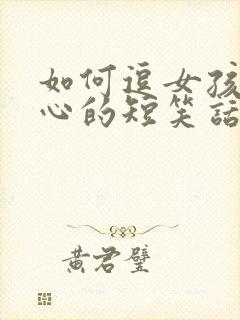 如何逗女孩
心的短笑話
黃君璧